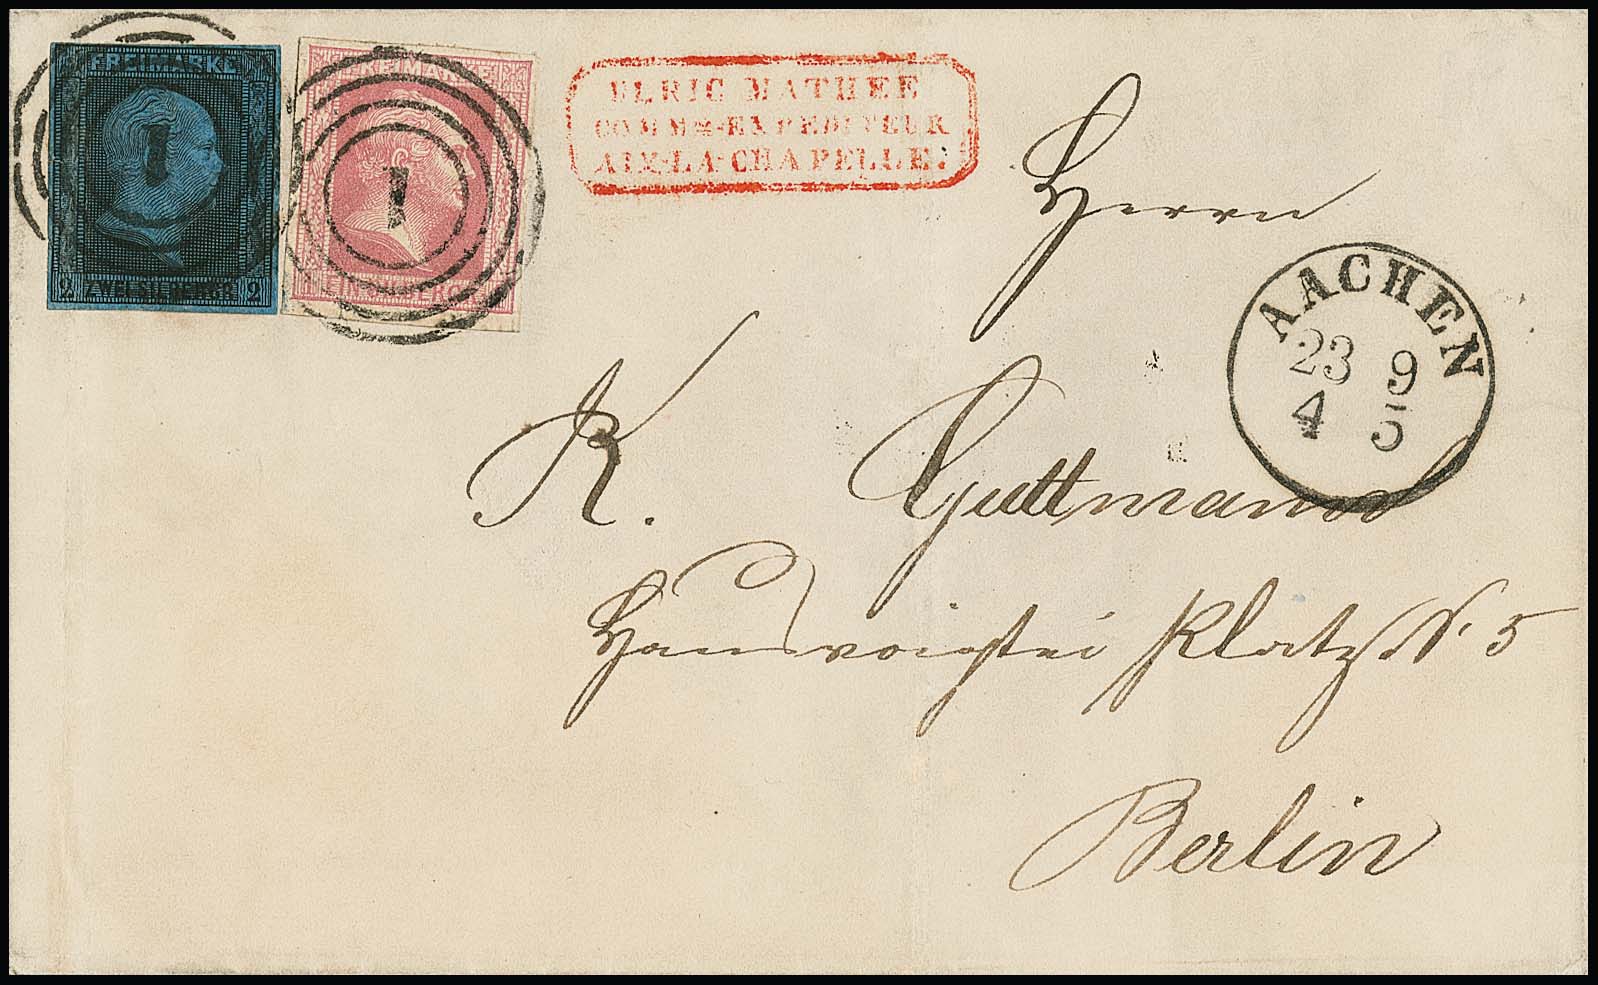 FREIMARKE
2 ZWEI SILBERGR. 2
1
FREIMARKE
EIN SILBERGR.
1
ULRIC MATHEE
COMMRE-EXPEDITEUR
AIX-LA-CHAPELLE.
Herrn
AACHEN
23 9
4 - 5
K. Guttmann
Hausvoigtei Platz N. 5
Berlin